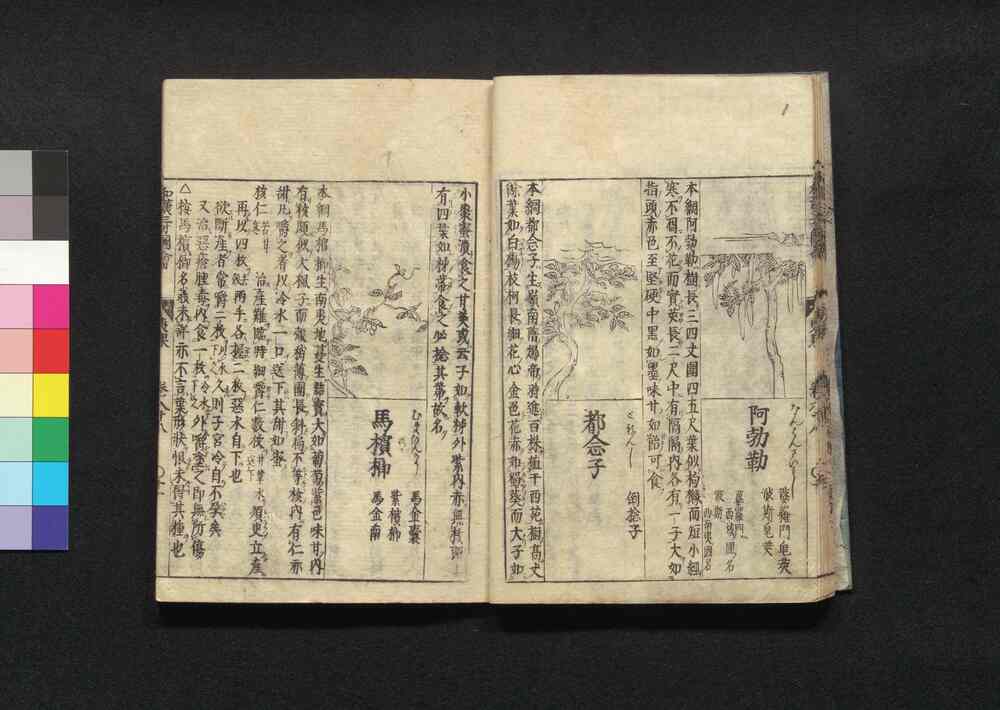 阿勃勒
なんばんさいかし
婆羅門皂莢
波斯皂莢
婆羅門
西域國ノ名
波斯
西南夷國名
本綱阿勃勒樹長三四丈圍四五尺葉似枸櫞而短小經
寒不凋不花而實莢長二尺中有隔隔内各有一子大如
指頭赤色至堅硬中黒如墨味甘如飴可食
都念子
とねんし
倒捻子
本綱都念子生嶺南隋煬帝時進百株植于西苑樹高丈
餘葉如白楊枝柯長細花心金色花赤如蜀葵而大子如
小棗蜜漬食之甘美或云子如軟柹外紫内赤無核頭
有四葉如柹蔕食之必捻其蔕故名
馬檳榔
馬金嚢
紫檳榔
馬金南
本綱馬檳榔生南夷地蔓生結實大如葡萄紫色味甘内
有核頗似大楓子而殻稍薄團長斜扁不等核内有仁亦
甜凡嚼之者以冷水一口送下其甜如蜜
核仁 治産難臨時細嚼仁數枚井華水須臾立産
再以四枚去殻兩手各握二枚惡水自下也
欲斷産者常嚼二枚水下久則子宮冷自不孕矣
又治惡瘡腫毒内食一枚冷水下外嚼塗之即無所傷
△按馬檳榔名義未詳亦不言葉形状恨未得其種也